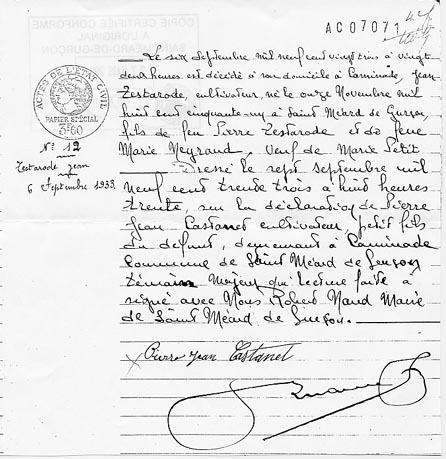 COPIE CERTIFIÉE CONFORME
A L'ORIGINAL
SAINT-MÉARD-DE-GURÇON
AC07071
ACTES DE L'ÉTAT CIVIL
PAPIER SPÉCIAL
3F60
N° 12
Testarode Jean
6 Septembre 1933
Le six Septembre mil neuf cent vingt trois à vingt
deux heures est décédé si son domicile à Caminade, Jean
Testarode, cultivateur, né le onze Novembre mil
huit cent cinquante-un à Saint Méard de Gurçon,
fils de feu Pierre Testarode et de feue
Marie Meynaud, Veuf de Marie Petit
Dressé le sept septembre mil
neuf cent trente trois à huit heures
trente, sur la déclaration de Pierre
Jean Castanet cultivateur, petit fils
du défunt, demeurant à Caminade
Commune de Saint Méard de Gurçon
témoin majeur qui lecture faite a
signé avec Nous Robert Naud Maire
de Saint Méard de Gurçon.
Pierre Jean Castanet